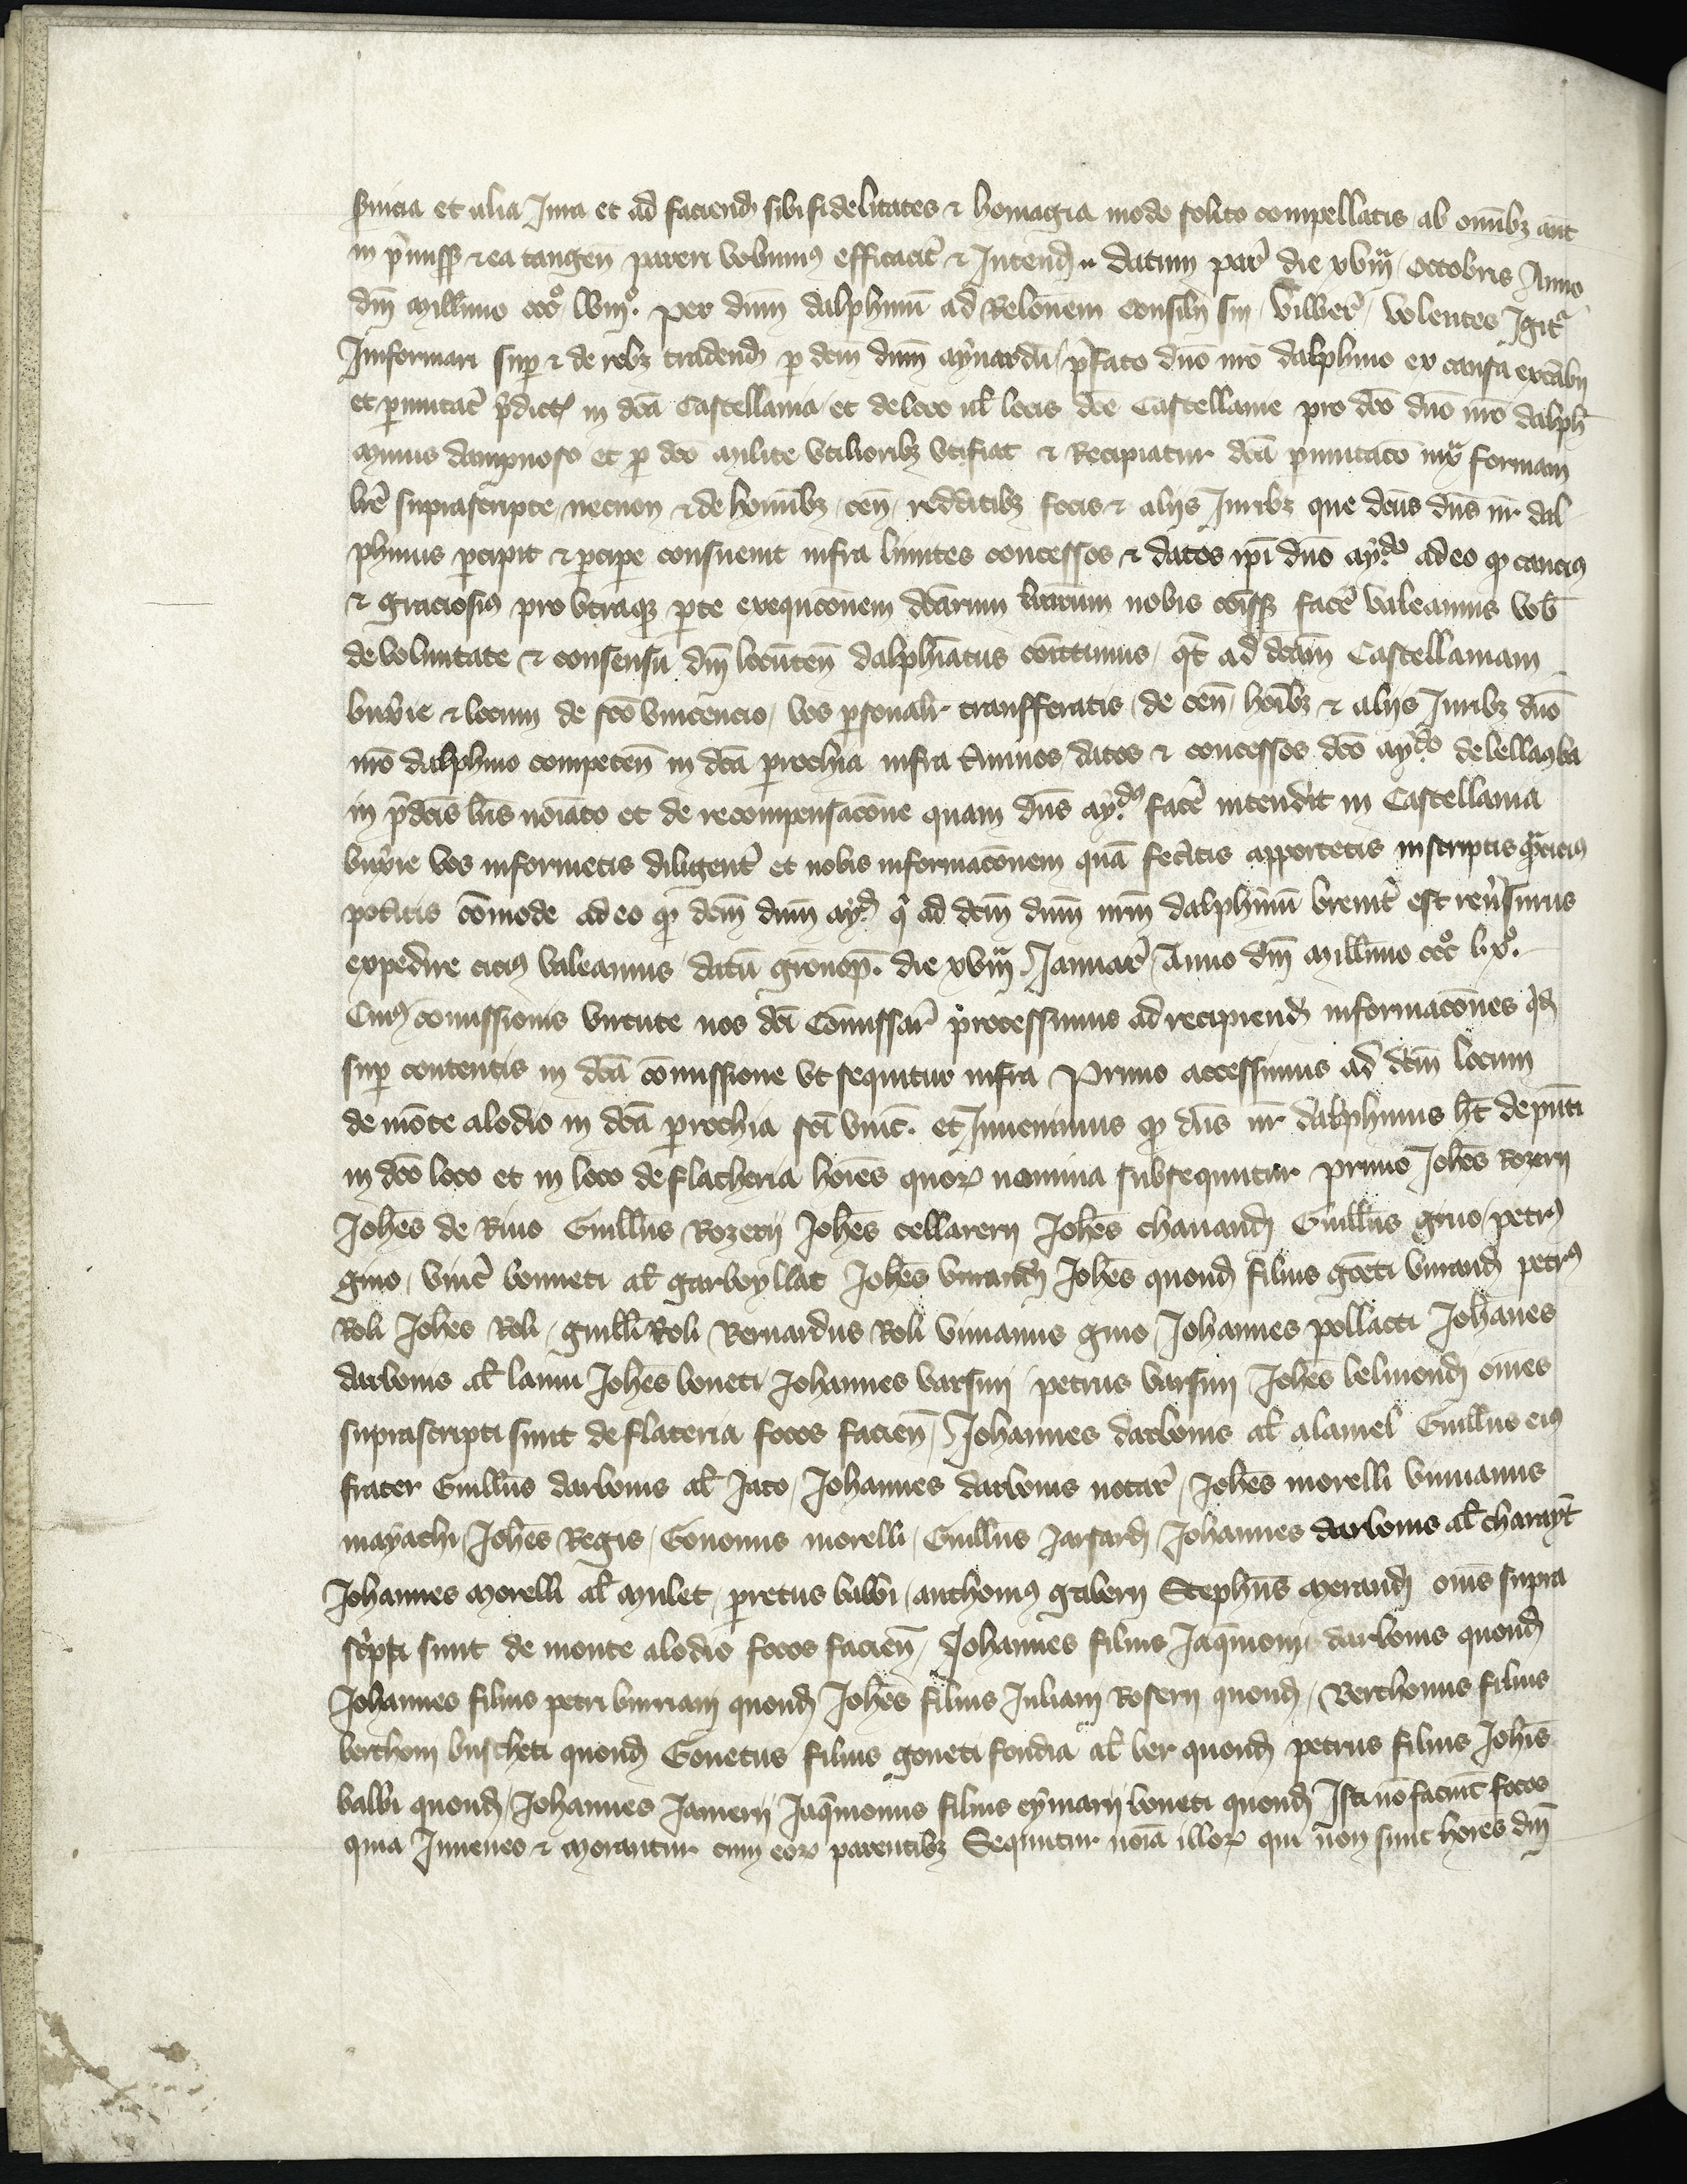 svicia et alia Jura et ad faciend sibi fidelitates & homagia modo solito compellatis ab omibz aut
in pmiss & ea tangen pareri volumus efficacit & Intend datum par die xviii Octobris Anno
dni millimo ccc lviii. per dnm dalphinu ad Relonem consilii sui Villier volentes Igit
Informari sup & de rebz tradend p dcm dnm aynardu pfato dno nro dalphino ex causa excabii
et pmutac pdict in dca Castellania et de loco ul locis dce Castellanie pro dco dno nro dalph
mynus dampnoso et p dco milite utilioribz ut fiat & Recipiatur dca pmutaco iux formam
lre suprascripte necnon & de homibz cen redditibz focis & aliis Juribz que dcus dns nr dal
phinus pcipit & pcipe consuevit infra limites concessos & datos ipi dno aydo adeo q caucius
& graciosius pro utraque pte exequconem dcarum lrarum nobis comiss face valeamus vob
de voluntate & consensu dni locuten dalphinatus comittimus qt ad dcam Castellaniam
buxie & locum de sco vincencio vos psonalr transferatis de cen hoibz & aliis Juribz dno
nro dalphino competen in dca prochia infra tminos datos & concessos dco aydo
in pdcis lris noiato et de recompensacone quam dns ayds face intendit in Castellania
buxie vos informetis diligent et nobis informaconem qua fectis apportetis in scriptis
potitis comode adeo q dcm dnm ayd q ad dcm dnm nrm dalphinu brevit est revsurus
expedire cicius valeamus datu gronop. die xviii Januar Anno dni millimo ccc lix.
Cuius comissionis virtute nos dci Comissar processimus ad recipiend informacones qd
sup contentis in dca comissione ut sequitur infra Primo accessimus ad dcm locum
de monte alodio in dca prochia sci vinc. et Invenimus q dns nr dalphinus ht de pnti
in dco loco et in loco de flacheria hoies quor nomina subsequntur primo Johes Rozerii
Johes de Rivo Guillus Rozerii Johes cellarerii Johes chavandi Guillus gino petrus
gino vinc bonneti al garboyllat Johes vinandi Johes quond filius goneti vinandi petrus
Roli Johes Roli guilli Roli Bernardus Roli vivianus gino Johannes pollacti Johanes
darbonis al lanin Johes boneti Johannes varsini petrus varsini Johes belmondi omes
suprascripti sunt de flateria focos facien Johannes darbonis al alamel Guillus eius
frater Guillus darbonis al Jaco Johannes darbonis notar Johes morelli vivianus
mayachi Johes Regis Gononus morelli Guillus Jarsardi Johannes darbonis al charayt
Johannes morelli al mulet petrus balbi anthonius Stephus merandi omes supra
scipti sunt de monte alodio focos facien Johannes filius Jaqmoni darbonis quond
Johannes filius petri viviani quond Johes filius Juliani Roserii quond Berthonus filius
berthoni buscheti quond Gonetus filius goneti fondra al ber quond petrus filius Johis
balbi quond Johannes Jamerii Jaqmonus filius eymarii boneti quond Isti no faciut focos
quia Juvenes & morantur cum eor parentibz Sequntur noia illor qui non sunt hoies dni